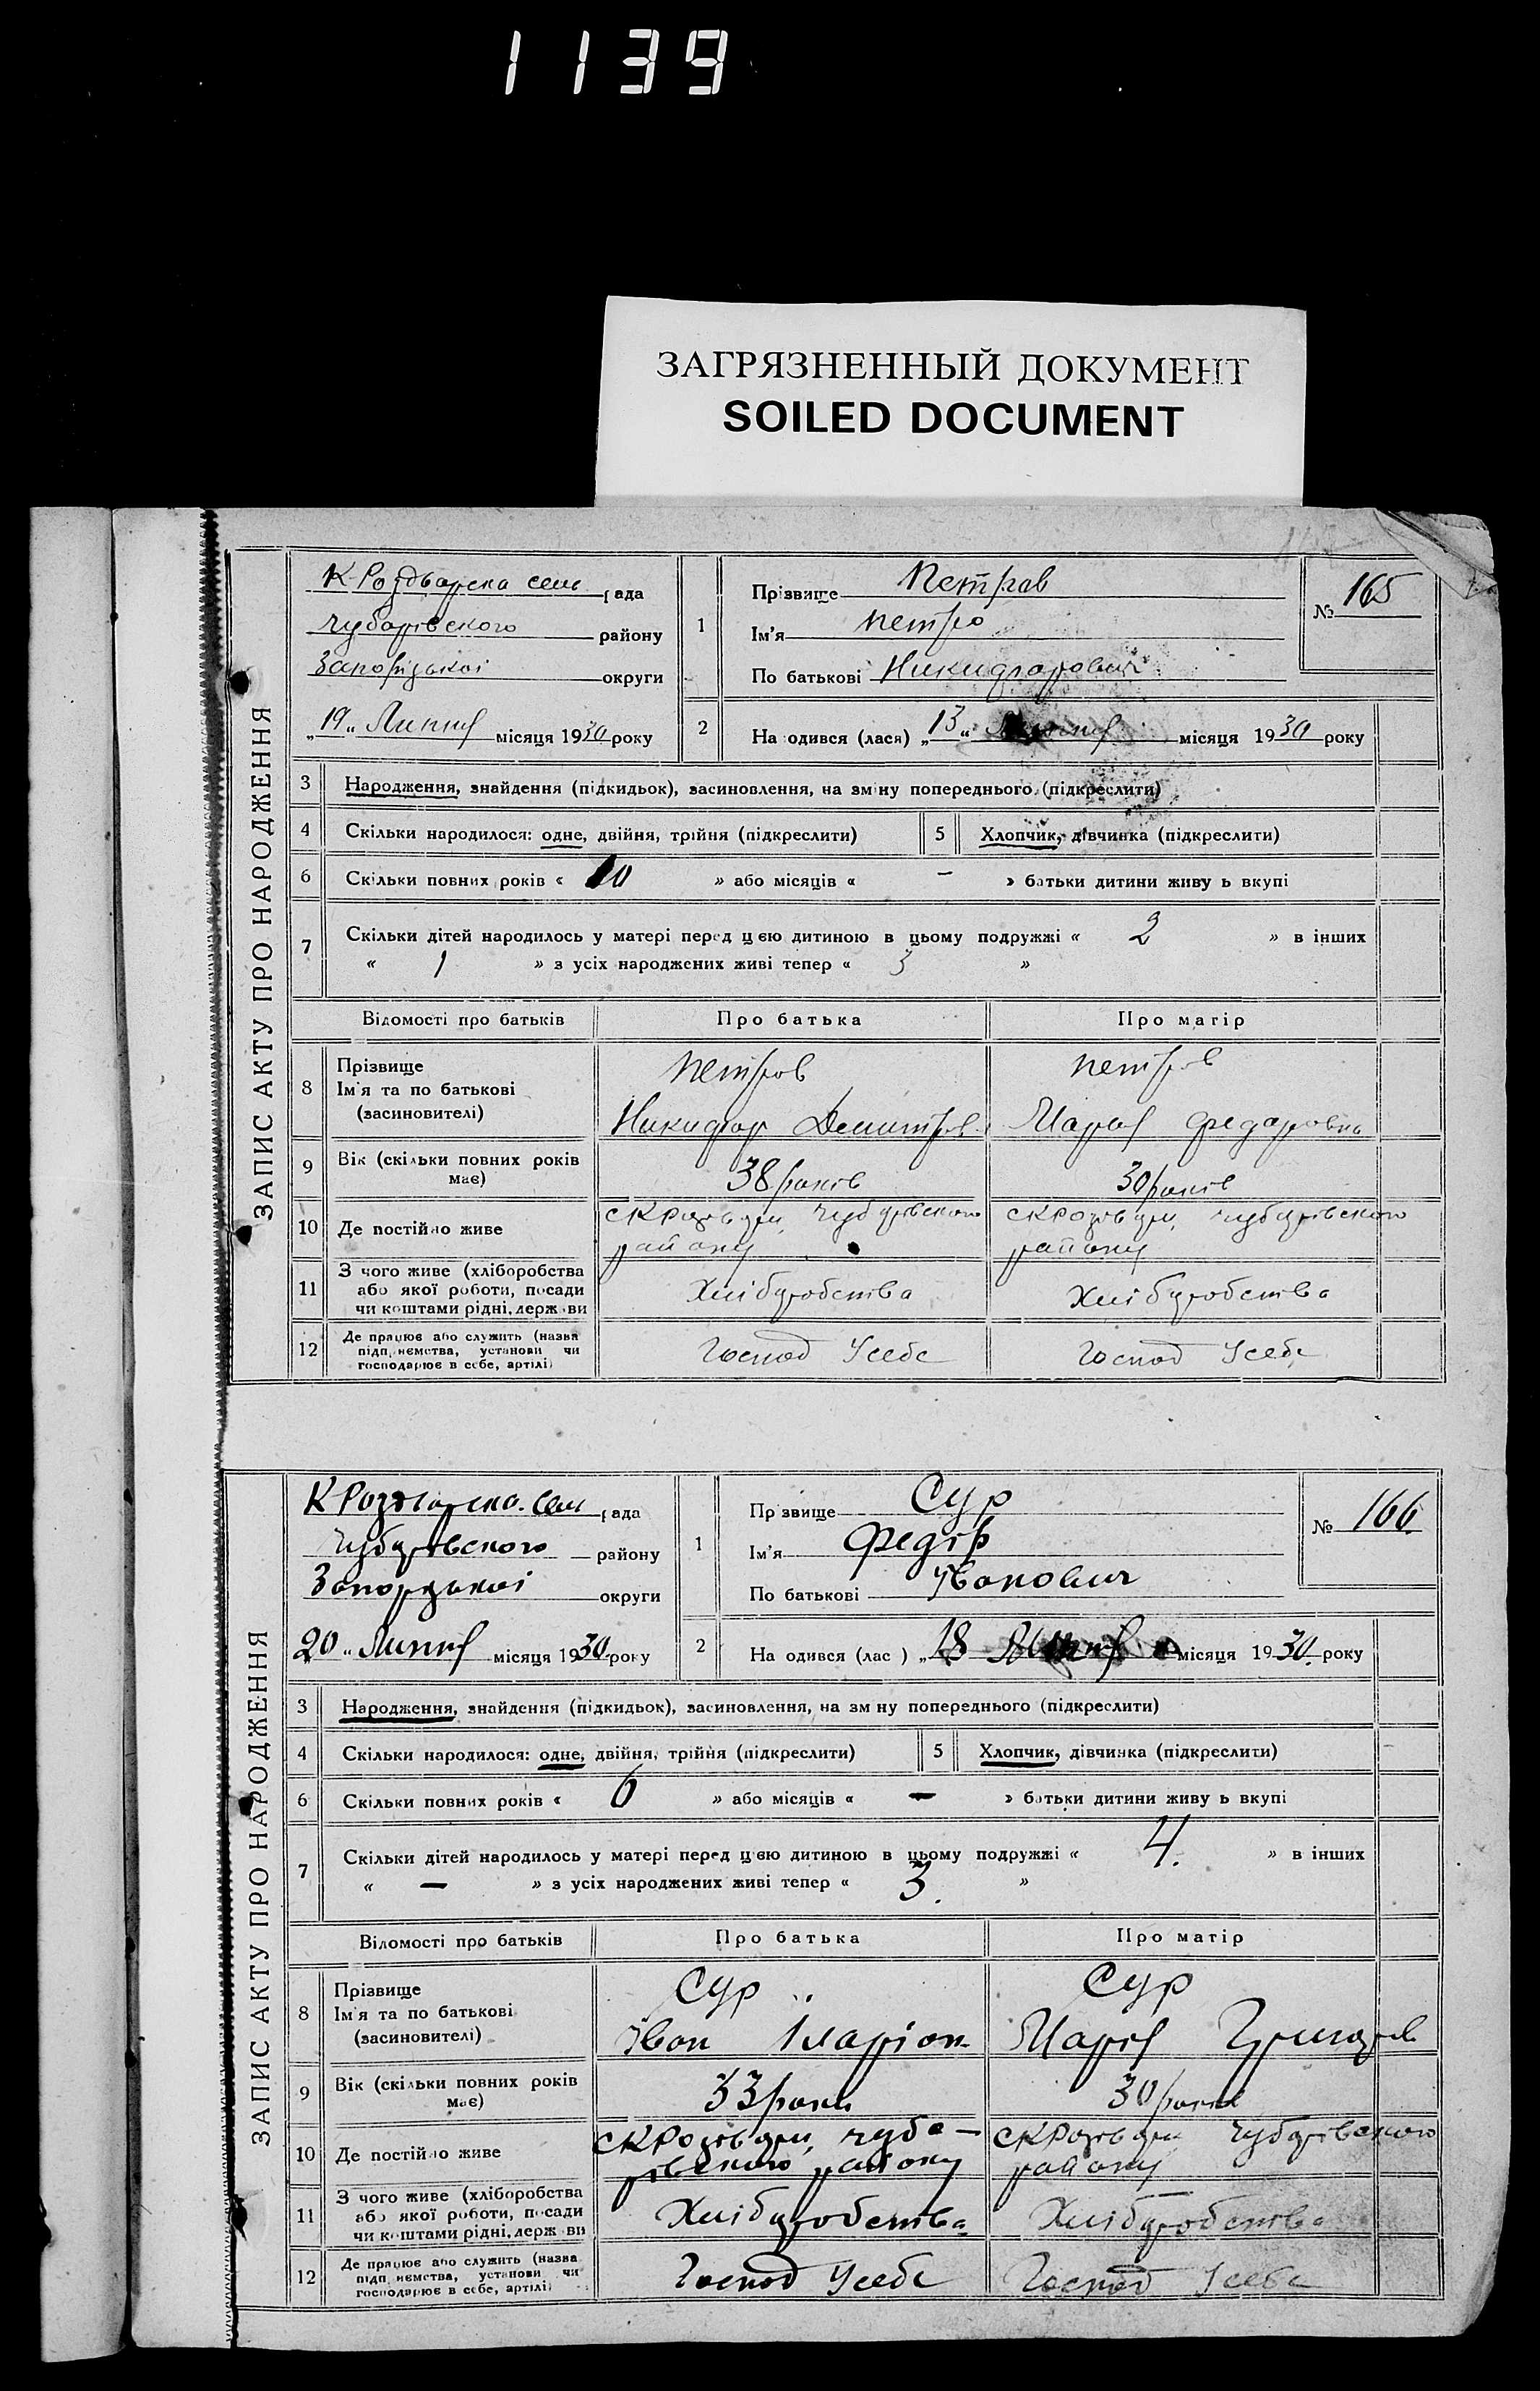 1139
ЗАГРЯЗНЕННЫЙ ДОКУМЕНТ
SOILED DOCUMENT
ЗАПИС АКТУ ПРО НАРОДЖЕННЯ
сель рада
Чубарівского району
Запорізької округи
„19“ Липня місяця 1930 року
1 Прізвище Петров
Ім'я Петро
По батькові Никифорович
№ 165
2 На одився (лася) „13“ Липня місяця 1930 року
3 Народження, знайдення (підкидьок), засиновлення, на зміну попереднього (підкреслити)
4 Скільки народилося: одне, двійня, трійня (підкреслити) 5 Хлопчик, дівчинка (підкреслити)
6 Скільки повних років « 10 » або місяців « – » батьки дитини живу ь вкупі
7 Скільки дітей народилось у матері перед цією дитиною в цьому подружжі « 2 » в інших
« 1 » з усіх народжених живі тепер « 3 »
Відомості про батьків Про батька Про матір
8 Прізвище Петров Петров
Ім'я та по батькові
(засиновителі) Никифор Демитров Мария Федоровна
9 Вік (скільки повних років має) 38 років 30 років
10 Де постійно живе Чубарівского Чубарівского
району району
11 З чого живе (хліборобства
або якої роботи, посади Хліборобства Хліборобства
чи коштами рідні, держ ви
12 Де працює або служить (назва
підп иємства, установи чи Господ Усебе Господ Усебе
господарює в себе, артілі)
ЗАПИС АКТУ ПРО НАРОДЖЕННЯ
сель рада
Чубарівского району
Запорізької округи
20 “ Липня місяця 1930 року
1 Пр звище Сур
Ім'я Федір
По батькові Іванович
№ 166.
2 На одився (лас ) „18 Липня місяця 1930. року
3 Народження, знайдення (підкидьок), засиновлення, на зм ну попереднього (підкреслити)
4 Скільки народилося: одне, двійня, трійня (підкреслити) 5 Хлопчик, дівчинка (підкреслити)
6 Скільки повних років « 6 » або місяців « – » батьки дитини живу ь вкупі
7 Скільки дітей народилось у матері перед цією дитиною в цьому подружжі « 4. » в інших
« – » з усіх народжених живі тепер « 3. »
Відомості про батьків Про батька Про матір
8 Прізвище Сур Сур
Ім'я та по батькові
(засиновителі) Іван Іларіон Мария Григоров
9 Вік (скільки повних років має) 33 роки 30 років
10 Де постійно живе Чуба- Чубарівского
рівского району району
11 З чого живе (хліборобства
або якої роботи, посади Хліборобства Хліборобства
чи коштами рідні, держ ви
12 Де працює або служить (назва
підп иємства, установи чи Господ Усебе Господ Усебе
господарює в себе, артілі)